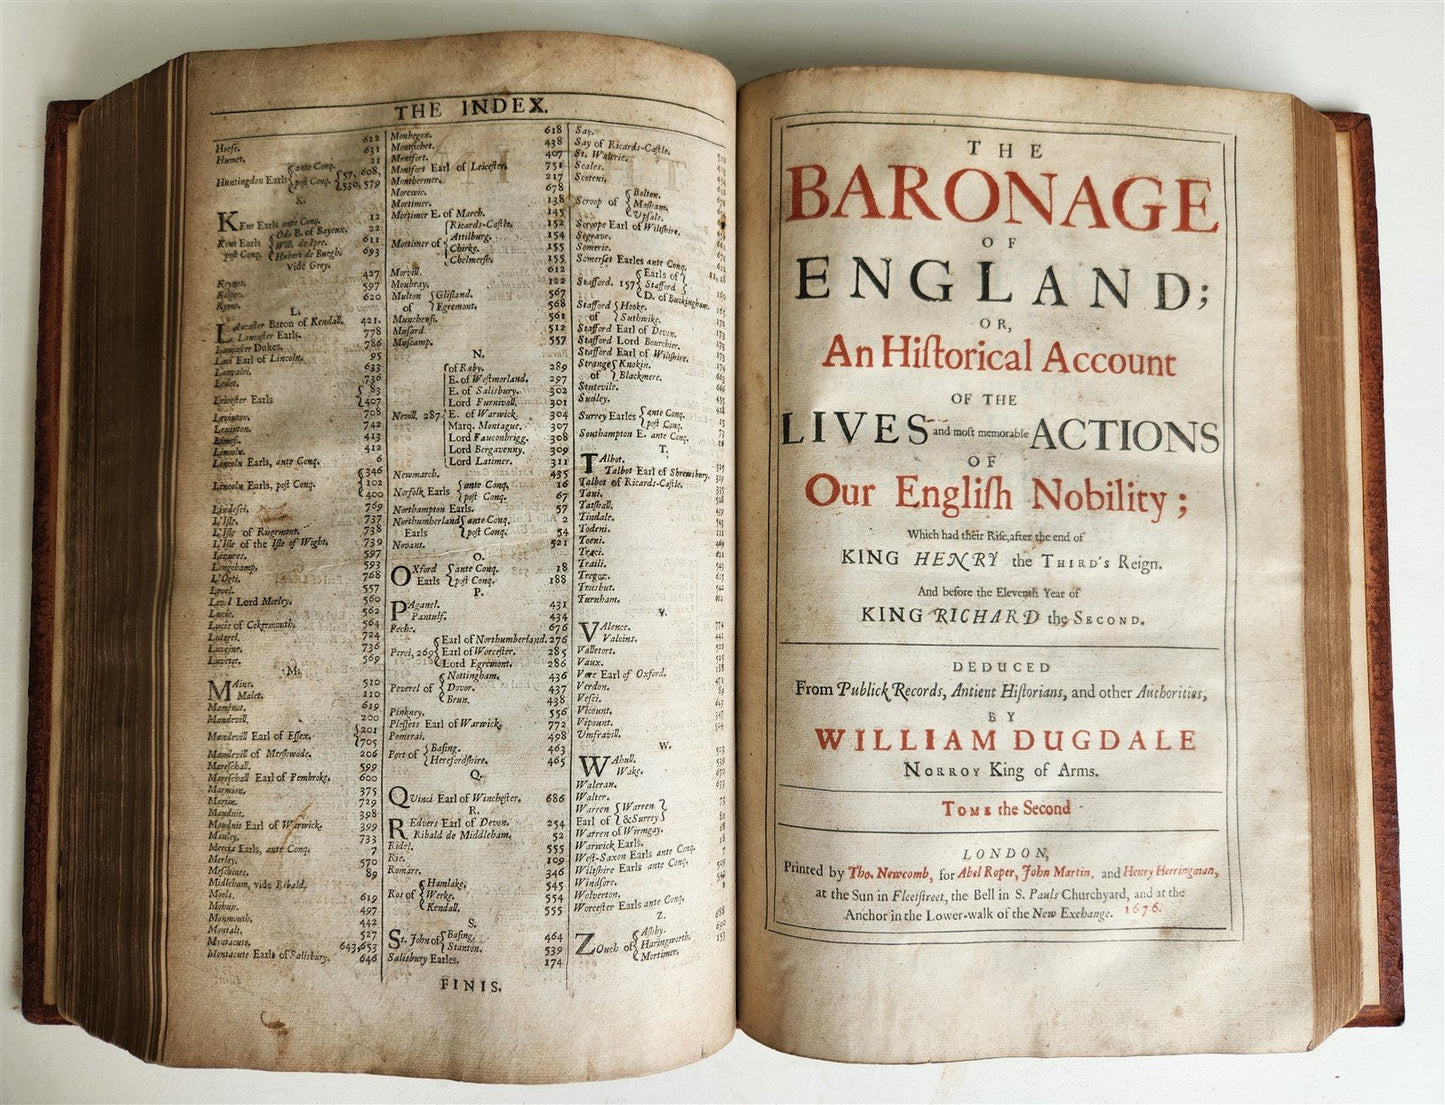 THE INDEX.
Hoese. 622
Humet. 631
21
Huntingdon Earls ante Conq. 57, 608,
post Conq. 530, 579
K.
KEnt Earls ante Conq. 12
Kent Earls Odo B. of Bayeux. 22
Will. de Ipre. 611
post Conq. Hubert de Burgh. 693
Vide Grey.
427
597
620
L.
LAncaster Baron of Kendall. 421.
Lancaster Earls. 778
Lancaster Dukes. 786
Laci Earl of Lincoln. 95
Lanvalei. 633
736
Leicester Earls 83
407
Levinton. 708
Lexinton. 742
Limesi. 413
Lincoln. 412
Lincoln Earls, ante Conq. 6
346
Lincoln Earls, post Conq. 102
400
Lindesei. 769
L'Isle. 737
L'Isle of Rugemont. 738
L'Isle of the Isle of Wight. 739
Lizures. 597
Longchamp. 593
L'Orti. 768
Lovel. 557
Lovel Lord Morley. 560
Lucie. 562
Lucie of Cokermouth. 564
Luterel. 724
Luvigne. 736
Luvetot. 569
M.
MAine. 510
Malet. 110
Maminot. 619
Mandevill. 200
Mandevill Earl of Essex. 201
705
Mandevill of Mershwode. 206
Mareschall. 599
Mareschall Earl of Pembroke. 600
Marmion. 375
Martin. 729
Mauduit. 398
Mauduit Earl of Warwick. 399
Mauley. 733
Mercia Earls, ante Conq. 7
Merley. 570
Meschines. 89
Midleham, vide Ribald.
Moels. 619
Mohun. 497
Monmouth. 442
Montalt. 527
Montacute. 643,653
Montacute Earls of Salisbury. 646
Monbegon. 618
Montfichet. 438
Montfort. 407
Montfort Earl of Leicester. 751
Monthermer. 217
Morewic. 678
Mortimer. 138
Mortimer E. of March. 145
Ricards-Castle. 152
Mortimer of Attilburg. 154
Chirke. 155
Chelmersh. 155
Morvill. 612
Moubray. 122
Multon Gilsland. 567
of Egremont. 568
Munchensi. 561
Musard. 512
Muscamp. 557
N.
of Raby. 289
E. of Westmorland. 297
E. of Salisbury. 302
Lord Furnivall. 301
Nevill 287 E. of Warwick. 304
Marq. Montague. 307
Lord Fauconbrigg. 308
Lord Bergavenny. 309
Lord Latimer. 311
Newmarch. 435
Norfolk Earls ante Conq. 16
post Conq. 67
Northampton Earls. 57
Northumberland ante Conq. 2
Earls post Conq. 54
Novant. 521
O.
OXford ante Conq. 18
Earls post Conq. 188
P.
PAganel. 431
Pantulf. 434
Peche. 676
Earl of Northumberland. 276
Perci, 269 Earl of Worcester. 285
Lord Egremont. 286
Nottingham. 436
Peverel of Dovor. 437
Brun. 438
Pinkney. 556
Plessets Earl of Warwick. 772
Pomerai. 498
Port of Basing. 463
Herefordshire. 465
Q.
QVinci Earl of Winchester. 686
R.
REdvers Earl of Devon. 254
Ribald de Middleham. 52
Ridel. 555
Rie. 109
Romare. 346
Hamlake. 545
Ros of Werke. 554
Kendall. 555
S.
St. John of Basing. 464
Stanton. 539
Salisbury Earles. 174
FINIS.
Say.
Say of Ricards-Castle.
St. Walerie.
Scales.
Scoteni.
Bolton.
Scroop of Masham.
Upsale.
Scroope Earl of Wiltshire.
Segrave.
Somerie.
Somerset Earles ante Conq.
Earls of
Stafford. 157 Stafford
D. of Buckingham.
Stafford Hooke.
of Suthwike.
Stafford Earl of Devon.
Stafford Lord Bourchier.
Stafford Earl of Wiltshire.
Strange Knokin.
of Blackmere.
Stutevile.
Sudley.
Surrey Earles ante Conq.
post Conq.
Southampton E. ante Conq.
T.
TAlbot.
Talbot Earl of Shrewsbury.
Talbot of Ricards-Castle.
Tani.
Tatshall.
Tindale.
Todeni.
Toeni.
Traci.
Traili.
Tregoz.
Trusbut.
Turnham.
V.
VAlence.
Valoins.
Valletort.
Vaux.
Vere Earl of Oxford.
Verdon.
Vesci.
Vicount.
Vipount.
Umfravill.
W.
WAhull.
Wake.
Waleran.
Walter.
Warren Warren
Earl of & Surrey
Warren of Wirmgay.
Warwick Earls.
West-Saxon Earls ante Conq.
Wiltshire Earls ante Conq.
Windsore.
Wolverton.
Worcester Earls ante Conq.
Z.
Ashby.
ZOuch of Haringworth.
Mortimer.
THE
BARONAGE
OF
ENGLAND;
OR,
An Hiſtorical Account
OF THE
LIVES and moſt memorable ACTIONS
OF
Our Engliſh Nobility;
Which had their Riſe, after the end of
KING HENRY the THIRD's Reign.
And before the Eleventh Year of
KING RICHARD the SECOND.
DEDUCED
From Publick Records, Antient Hiſtorians, and other Authorities,
BY
WILLIAM DUGDALE
NORROY King of Arms.
TOME the Second
LONDON,
Printed by Tho. Newcomb, for Abel Roper, John Martin, and Henry Herringman,
at the Sun in Fleetſtreet, the Bell in S. Pauls Churchyard, and at the
Anchor in the Lower-walk of the New Exchange. 1676.